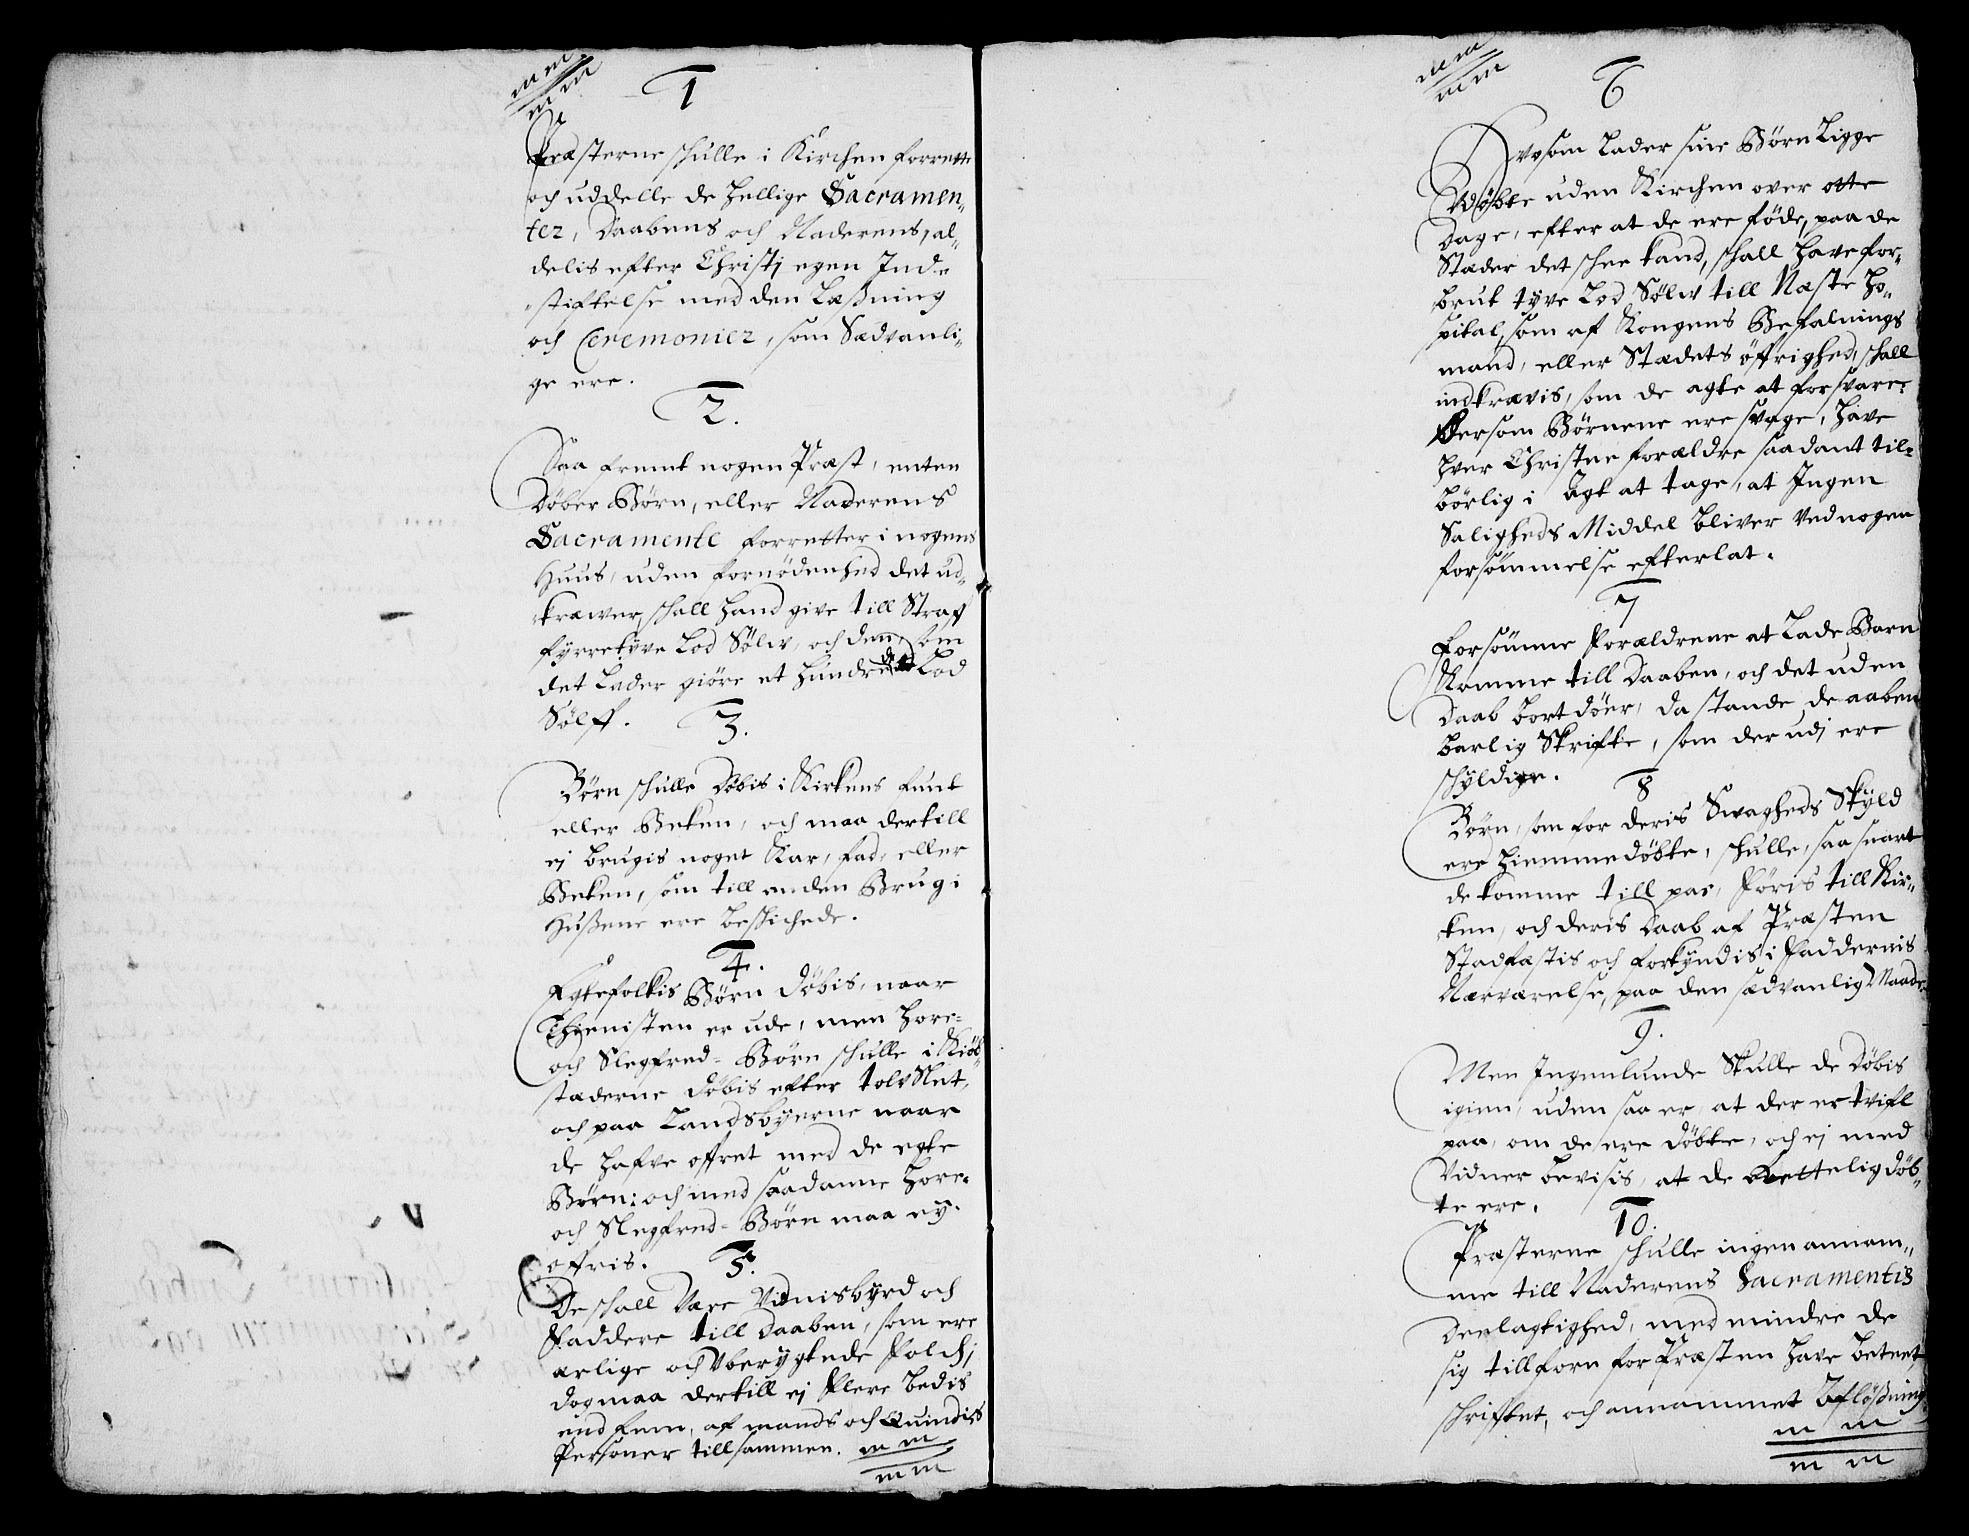 1
Præsterne schulle i Kirchen forrette
och uddelle de hellige Sacramen„
ter, Daabens och Naderens, al„
delis efter Christj egen Ind„
„stiftelse med den Læßning
och Ceremonier, som Sædvanli„
ge ere.
2.
Saa fremt nogen Præst, enten
Døber Børn, eller Naderens
Sacramente forretter i nogens
Huus, uden fornödenhed det ud„
kræwer, schall hand give till Straff
fyrretyve Lod Sølw, och den, som
det Lader giöre et hundrede Lod
Sölff.
3.
Börn schulle Döbis i Kirkens funt
eller Beken, och maa dertill
ej brugis noget Kar, fad, eller
Beken, som till anden Brug i
Hußene ere beschichede.
4.
Egtefolkis Börn döbis, naar
Thienisten er ude, men Hore-
och Slegfred-Börn schulle i Kiöb„
stæderne döbis efter tolv Slet,
och paa Landsbyerne naar
de hafve offret med de egte
Börn; och med saadanne Hore-
och Slegfred-Börn maa ey
offris.
5.
De schall Være Vidnisbyrd och
Faddere till Daaben, som ere
ærlige och Uberygtede Folch;
dog maa dertill ej flere bedis
end fem, af mands och Quindis
Personer tillsammen.
6
Hvosom Lader sine Börn Ligge
Udöbte uden Kirchen over otte
Dage, efter at de ere föde, paa de
Stæder det schee kand, schall have for„
brut tyve Lod Sølw till Næste Ho„
spital, som af Kongens Befalnings
mand, eller Stædets öffrighed, schall
indkrævis, som de agte at forsvare.
Dersom Börnene ere svage, have
hver Christne forældre saadant til„
börlig i Agt at tage, at Ingen
Saligheds Middel bliver Ved nogen
forsömmelse efterlat.
7
Forsömme Forældrene at Lade Barn
Komme till Daaben, och det uden
Daab bort döer, da stande de aaben
barlig Skrifte, som der udj ere
schyldige.
8
Börn, som for deris Swagheds Skyld
ere hiemmedöbte, schulle, saa snart
de komme till pas, Föris till Kir„
ken, och deris Daab af Præsten
Stadfæstis och forkyndis i Faddernis
Nærværelse, paa den sædvanlig Maade.
9.
Men Ingenlunde Skulle de Döbis
igien, uden saa er, at der er tvifl
paa, om de ere döbte, och ej med
Vidner bevisis, at de Rettelig döb„
te ere.
10.
Præsterne schulle ingen annam„
me till Naderens Sacramentis
Deelagtighed, med mindre de
sig tillforn for Præsten have beteet
schriftet, och annammet Aflößning